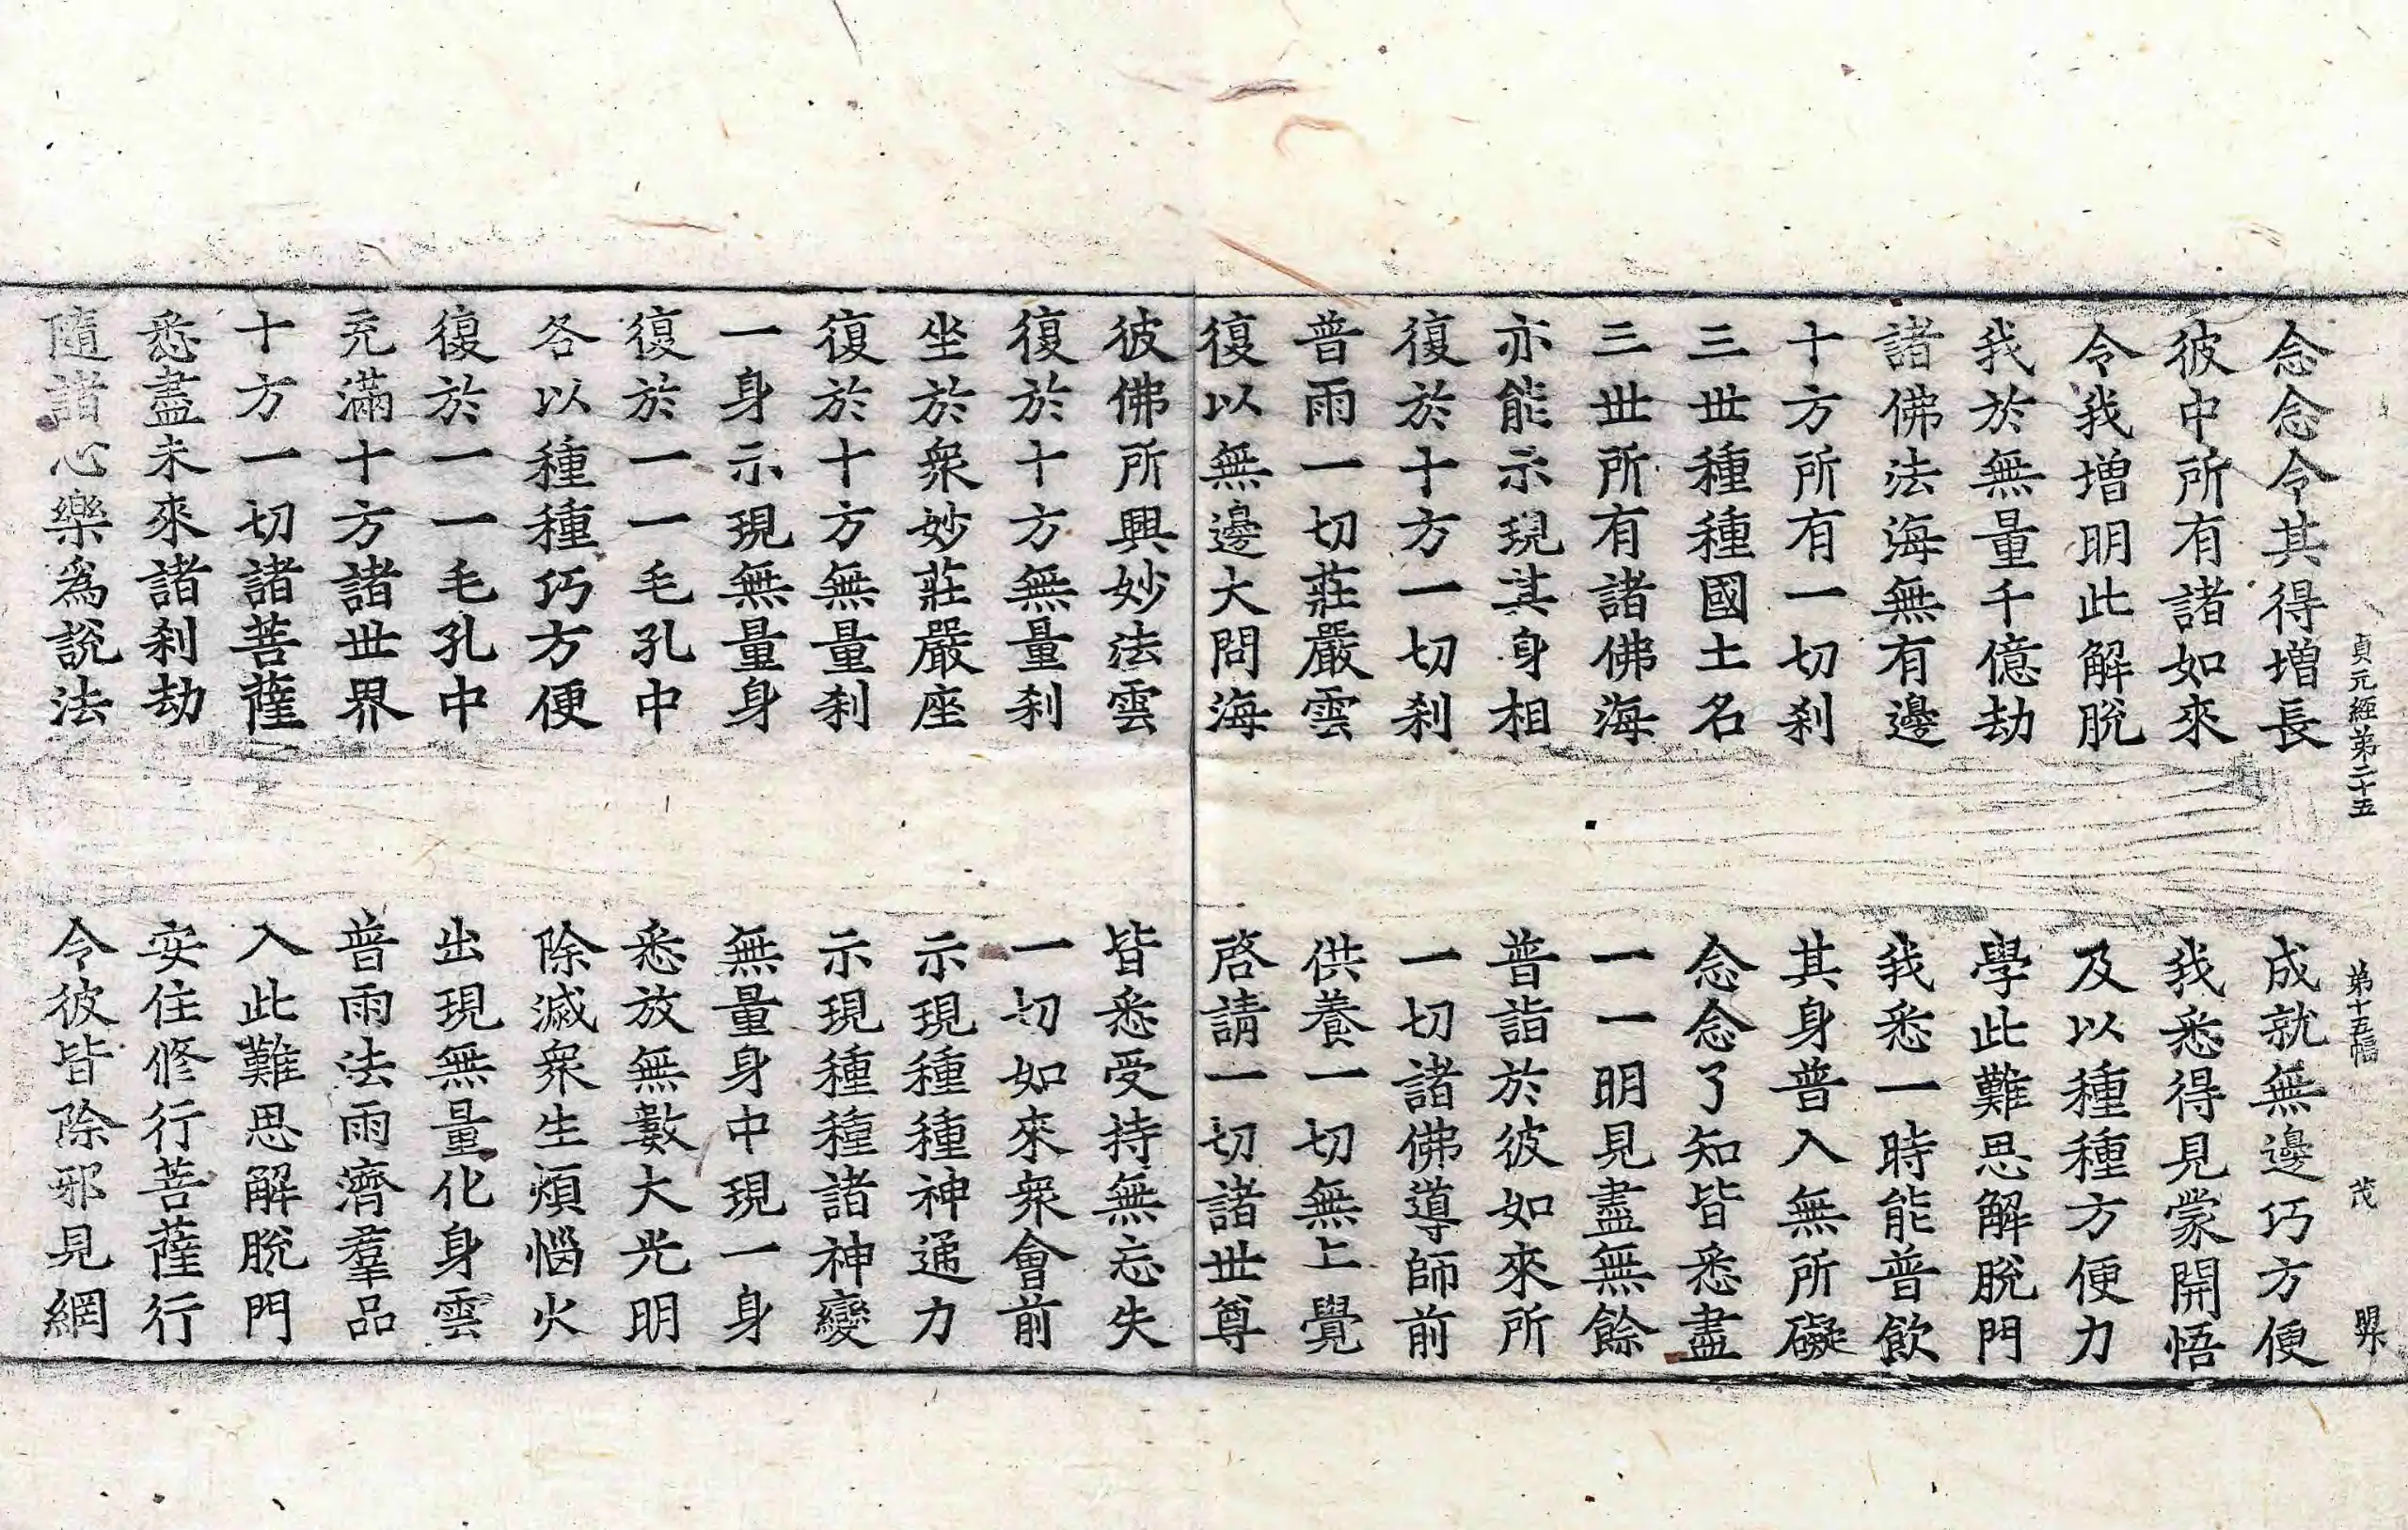 貞元經第二十五 第十五幅 茂
念念令其得增長 成就無邊巧方便
彼中所有諸如來 我悉得見蒙開悟
令我增明此解脫 及以種種方便力
我於無量千億劫 學此難思解脫門
諸佛法海無有邊 我悉一時能普飮
十方所有一切刹 其身普入無所礙
三世種種國土名 念念了知皆悉盡
三世所有諸佛海 一一明見盡無餘
亦能示現其身相 普詣於彼如來所
復於十方一切刹 一切諸佛導師前
普雨一切莊嚴雲 供養一切無上覺
復以無邊大問海 啓請一切諸世尊
彼佛所興妙法雲 皆悉受持無忘失
復於十方無量刹 一切如來衆會前
坐於衆妙莊嚴座 示現種種神通力
復於十方無量刹 示現種種諸神變
一身示現無量身 無量身中現一身
復於一一毛孔中 悉放無數大光明
各以種種巧方便 除滅衆生煩惱火
復於一一毛孔中 出現無量化身雲
充滿十方諸世界 普雨法雨濟羣品
十方一切諸菩薩 入此難思解脫門
悉盡未來諸刹劫 安住修行菩薩行
隨諸心樂爲說法 令彼皆除邪見網